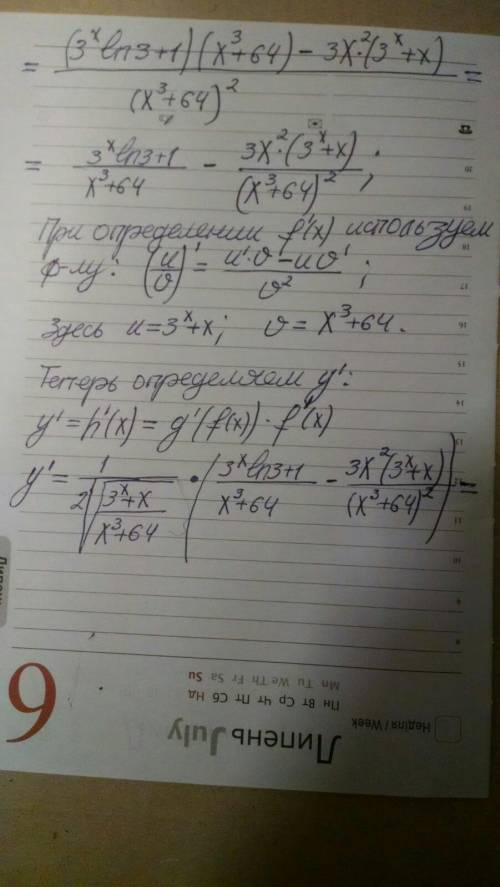 = ((3ˣ ln3+1)(x³+64) − 3x²·(3ˣ+x)) / (x³+64)² =
= (3ˣ ln3+1)/(x³+64) − (3x²·(3ˣ+x))/(x³+64)²;
При определении f'(x) используем
ф-лу: (u/v)' = (u'·v − uv')/v²;
Здесь u = 3ˣ+x; v = x³+64.
Теперь определяем y':
y' = h'(x) = g'(f(x))·f'(x)
y' = 1/(2√((3ˣ+x)/(x³+64))) · ((3ˣ ln3+1)/(x³+64) − (3x²(3ˣ+x))/(x³+64)²) =
9
Липень July
Неділя / Week
Пн Вт Ср Чт Пт Сб Нд
Mn Tu We Th Fr Sa Su